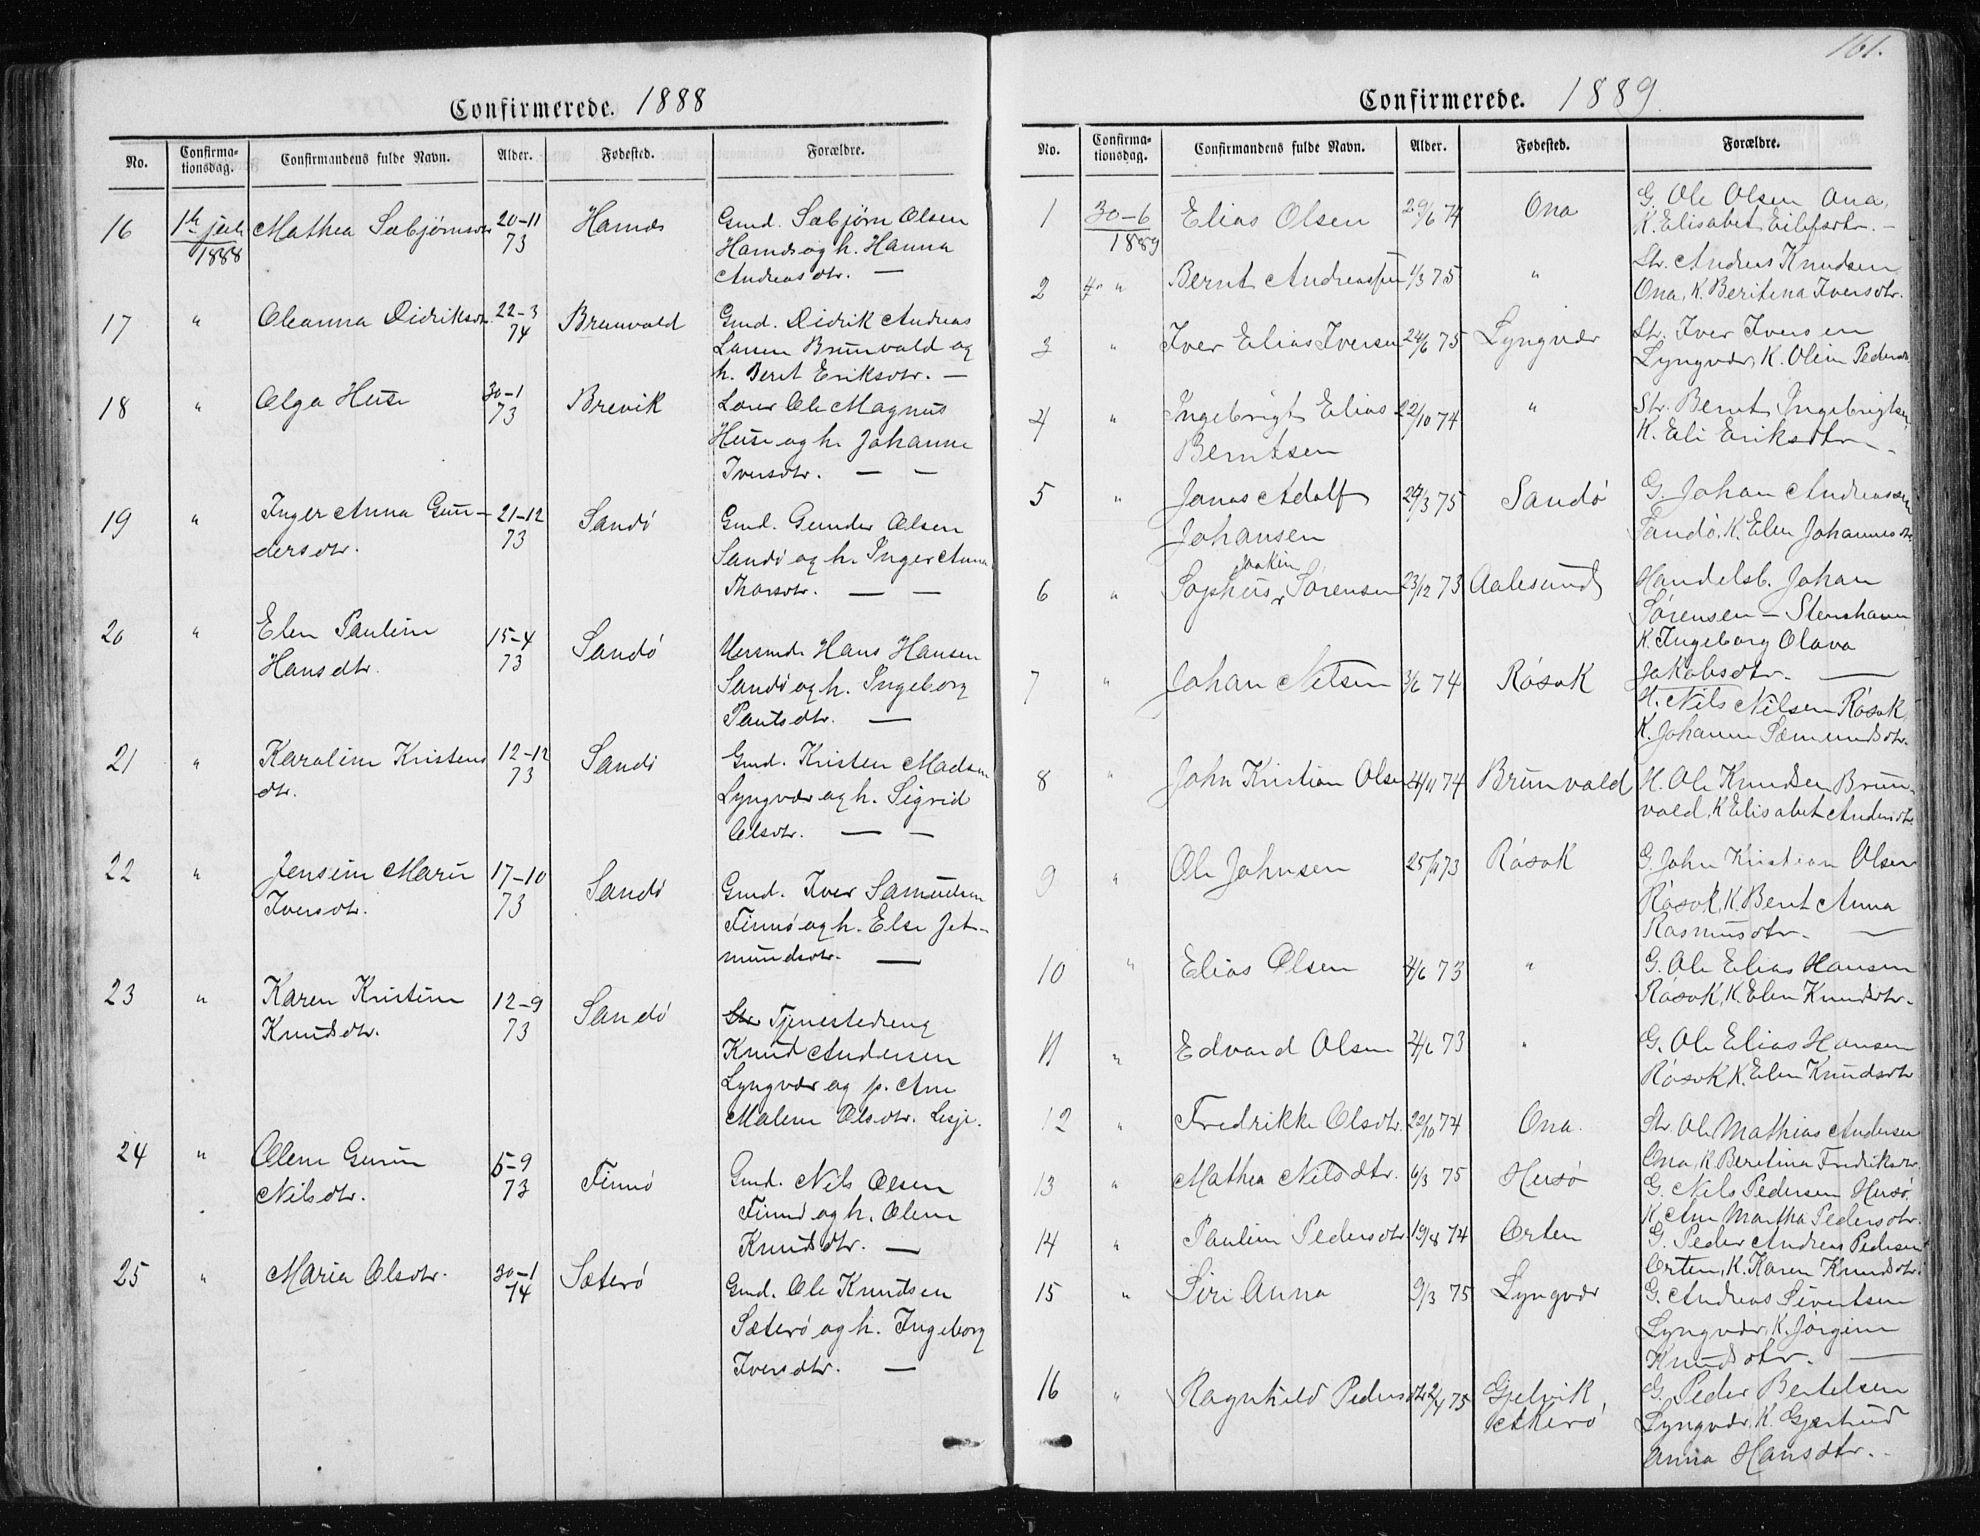 Confirmerede. 1888
No. Confirma-tionsdag. Confirmandens fulde Navn. Alder. Fødested. Forældre.
16 1ste juli 1888 Mathea Sæbjørnsdtr 20-11 73 Harnds Gmd. Sæbjørn Olsen
Harnds og h. Hanna
Andreasdtr. —
17 " Oleanna Didriksdtr. 22-3 74 Brunvold Gmd. Didrik Andreas
Larsen Brunvold og
h. Beret Eriksdtr. —
18 " Olga Huse 30-1 73 Brevik Lærer Ole Magnus
Huse og h. Johanne
Iversdtr. — —
19 " Inger Anna Gun-
dersdtr. 21-12 73 Sandø Gmd. Gunder Olsen
Sandø og h. Inger Anna
Thorsdtr. — —
20 " Elen Pauline
Hansdtr. 15-4 73 Sandø Hans Hansen
Sandø og h. Ingeborg
Paulsdtr. —
21 " Karoline Kristens
dtr. 12-12 73 Sandø Gmd. Kristen Madsen
Lyngvær og h. Sigrid
Olsdtr. — —
22 " Jensine Marie
Iversdtr. 17-10 73 Sandø Gmd. Iver Samuelsen
Finnø og h. Else Jet-
mundsdtr. —
23 " Karen Kristine
Knudsdtr. 12-9 73 Sandø Str Tjenestedreng
Knud Andersen
Lyngvær og p. Ane
Malene Olsdtr. Lesje.
24 " Olene Gurine
Nilsdtr. 5-9 73 Finnø Gmd. Nils Olsen
Finnø og h. Olene
Knudsdtr. —
25 " Maria Olsdtr. 30-1 74 Sæterø Gmd. Ole Knudsen
Sæterø og h. Ingeborg
Iversdtr. —
161.
Confirmerede. 1889
No. Confirma-tionsdag. Confirmandens fulde Navn. Alder. Fødested. Forældre.
1 30-6 1889 Elias Olsen 29/6 74 Ona G. Ole Olsen Ona,
K. Elisabet Eilefsdtr. —
2 " Bernt Andreassen 1/3 75 " Str. Andreas Knudsen
Ona, K. Beritena Iversdtr.
3 " Iver Elias Iversen 24/6 75 Lyngvær Str. Iver Iversen
Lyngvær, K. Oline Pedersdtr
4 " Ingebrigt Elias
Berntsen 22/10 74 " Str. Bernt Ingebrigtsen
K. Eli Eriksdtr —
5 " Jonas Adolf
Johansen 24/3 75 Sandø G. Johan Andreassen
Sandø, K. Elen Johannesdtr
6 " Sophus Joakim Sørensen 23/12 73 Aalesund Handelsb. Johan
Sørensen — Stenshavn
K. Ingeborg Olava
Jakobsdtr. —
7 " Johan Nilsen 3/6 74 Røsok H. Nils Nilsen Røsok,
K. Johanne Sæmundsdtr.
8 " John Kristian Olsen 21/11 74 Brunvold H. Ole Knudsen Brun-
vold, K Elisabet Andersdtr.
9 " Ole Johnsen 25/11 73 Røsok G. John Kristian Olsen
Røsok, K. Berit Anna
Rasmusdtr. —
10 " Elias Olsen 4/6 73 " G. Ole Elias Hansen
Røsok, K. Elen Knudsdtr.
11 " Edvard Olsen 4/6 73 " G. Ole Elias Hansen
Røsok K. Elen Knudsdtr
12 " Fredrikke Olsdtr. 22/10 74 Ona. Str. Ole Mathias Andersen
Ona, K. Beretina Fredriksdtr.
13 " Mathea Nilsdtr. 6/3 75 Husø G. Nils Pedersen Husø,
K Ane Martha Pedersdtr.
14 " Pauline Pedersdtr 19/8 74 Orten G. Peder Andreas Pedersen
Orten, K. Karen Knudsdtr.
15 " Siri Anna 9/3 75 Lyngvær G. Andreas Sivertsen
Lyngvær, K. Jørgine
Knudsdtr. —
16 " Ragnhild Pedersdtr 2/4 75 Gjelvik
Akerø G. Peder Bertelsen
Lyngvær, K. Gjertrud
Anna Hansdtr. —